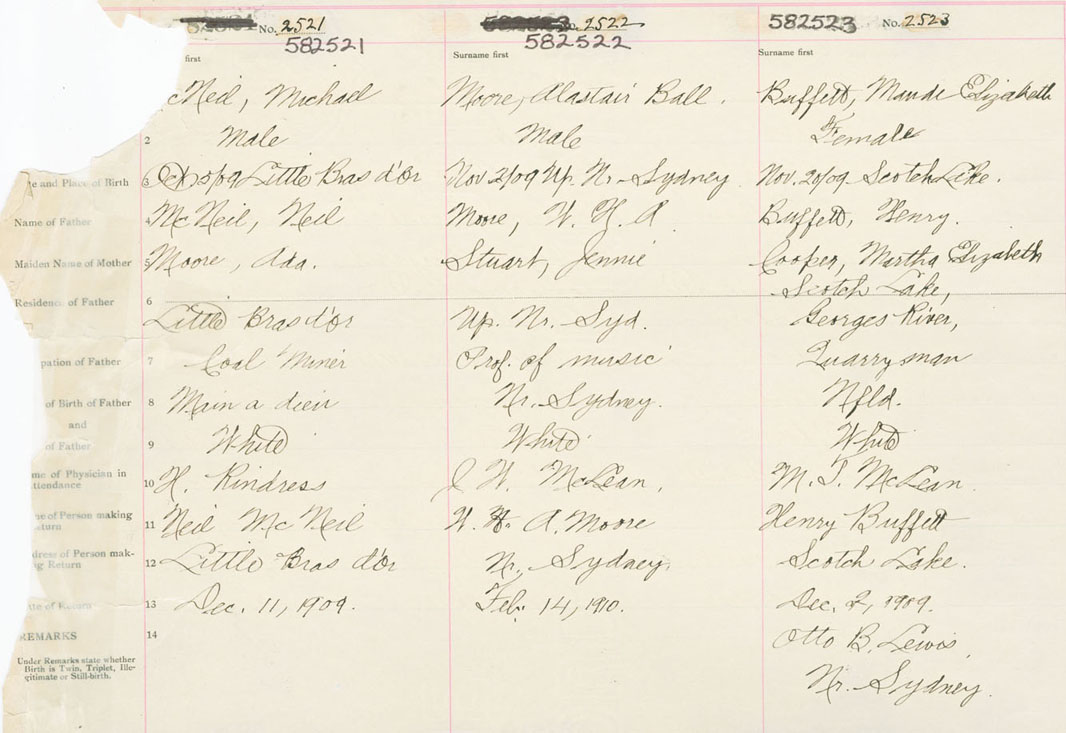 No. 2521
582521
first
cNeil, Michael
2 Male
e and Place of Birth
3 Oct 5/09 Little Bras d'Or
Name of Father
4 McNeil, Neil
Maiden Name of Mother
5 Moore, Ada.
Residence of Father
6 Little Bras d'or
pation of Father
7 Coal Miner
of Birth of Father
8 Main a dieu
and
of Father
9 White
me of Physician in
ttendance
10 H. Kindress
e of Person making
turn
11 Neil McNeil
dress of Person mak-
ng Return
12 Little Bras d'or
te of Return
13 Dec. 11, 1909.
REMARKS
14
Under Remarks state whether
Birth is Twin, Triplet, Ille-
gitimate or Still-birth.
No. 2522
582522
Surname first
Moore, Alastair Ball.
Male
Nov 2/09 Up. Nr. Sydney
Moore, W. H. A
Stuart, Jennie
Up. Nr. Syd.
Prof. of music
Nr. Sydney.
White
J W. McLean.
W. H. A. Moore
Nr. Sydney.
Feb. 14, 1910.
582523 No. 2523
Surname first
Buffett, Maude Elizabeth
Female
Nov. 20/09 Scotch Lake.
Buffett, Henry.
Cooper, Martha Elizabeth
Scotch Lake,
Georges River,
Quarryman
Nfld.
White
M. T. McLean
Henry Buffett
Scotch Lake.
Dec. 2, 1909.
Otto B. Lewis,
Nr. Sydney.